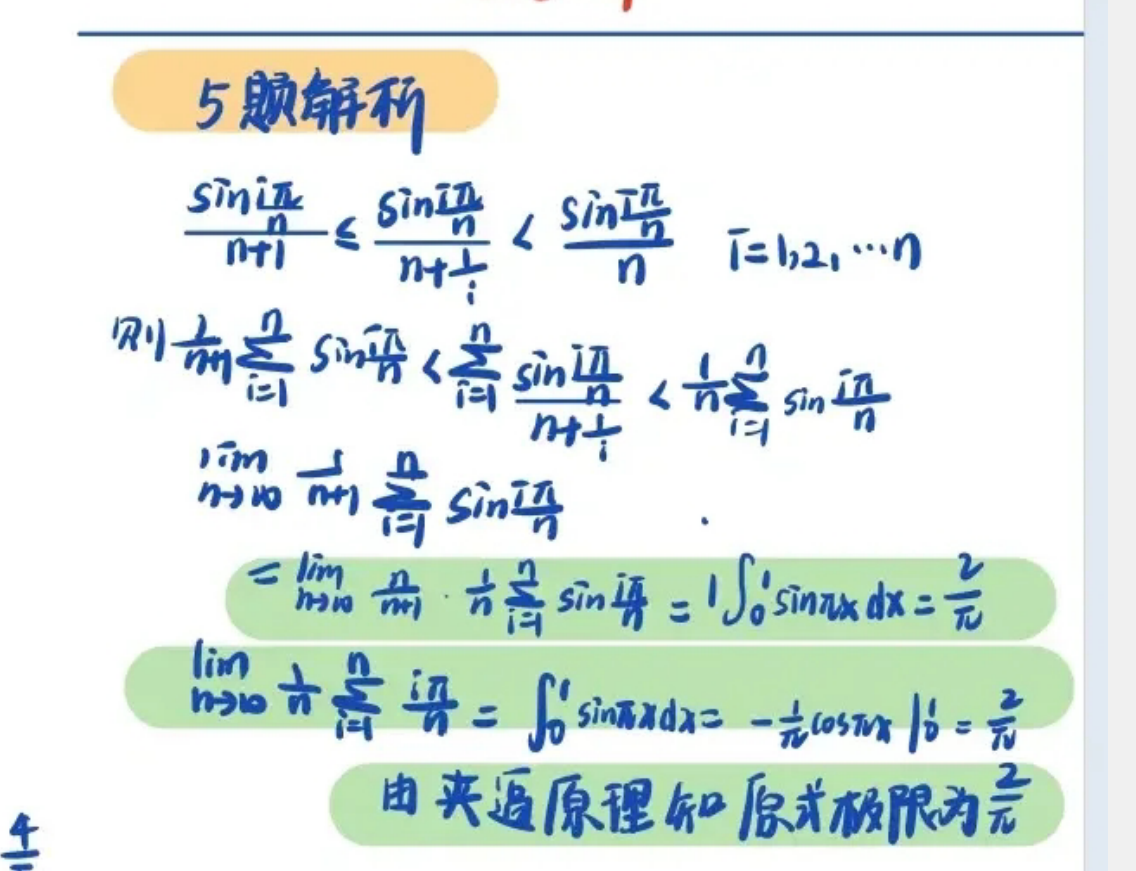 5题解析
\frac{\sin i\frac{π}{n}}{n+1} ≤ \frac{\sin i\frac{π}{n}}{n+\frac{1}{i}} < \frac{\sin i\frac{π}{n}}{n} i=1,2,…n
则 \frac{1}{n+1} \sum_{i=1}^{n} \sin\frac{iπ}{n} < \sum_{i=1}^{n} \frac{\sin\frac{iπ}{n}}{n+\frac{1}{i}} < \frac{1}{n} \sum_{i=1}^{n} \sin\frac{iπ}{n}
\lim_{n→∞} \frac{1}{n+1} \sum_{i=1}^{n} \sin\frac{iπ}{n}
= \lim_{n→∞} \frac{n}{n+1} · \frac{1}{n} \sum_{i=1}^{n} \sin\frac{iπ}{n} = 1\int_0^1 \sinπx dx = \frac{2}{π}
\lim_{n→∞} \frac{1}{n} \sum_{i=1}^{n} \frac{iπ}{n} = \int_0^1 \sinπx dx = -\frac{1}{π}\cosπx |_0^1 = \frac{2}{π}
由夹逼原理知原式极限为\frac{2}{π}
4